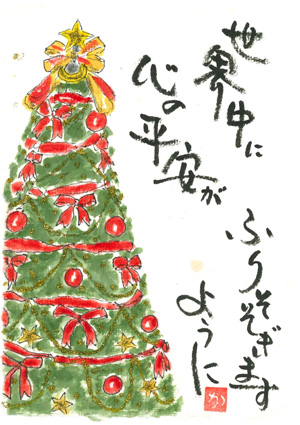 世界中に
心の平安が
ふりそそぎます
ように